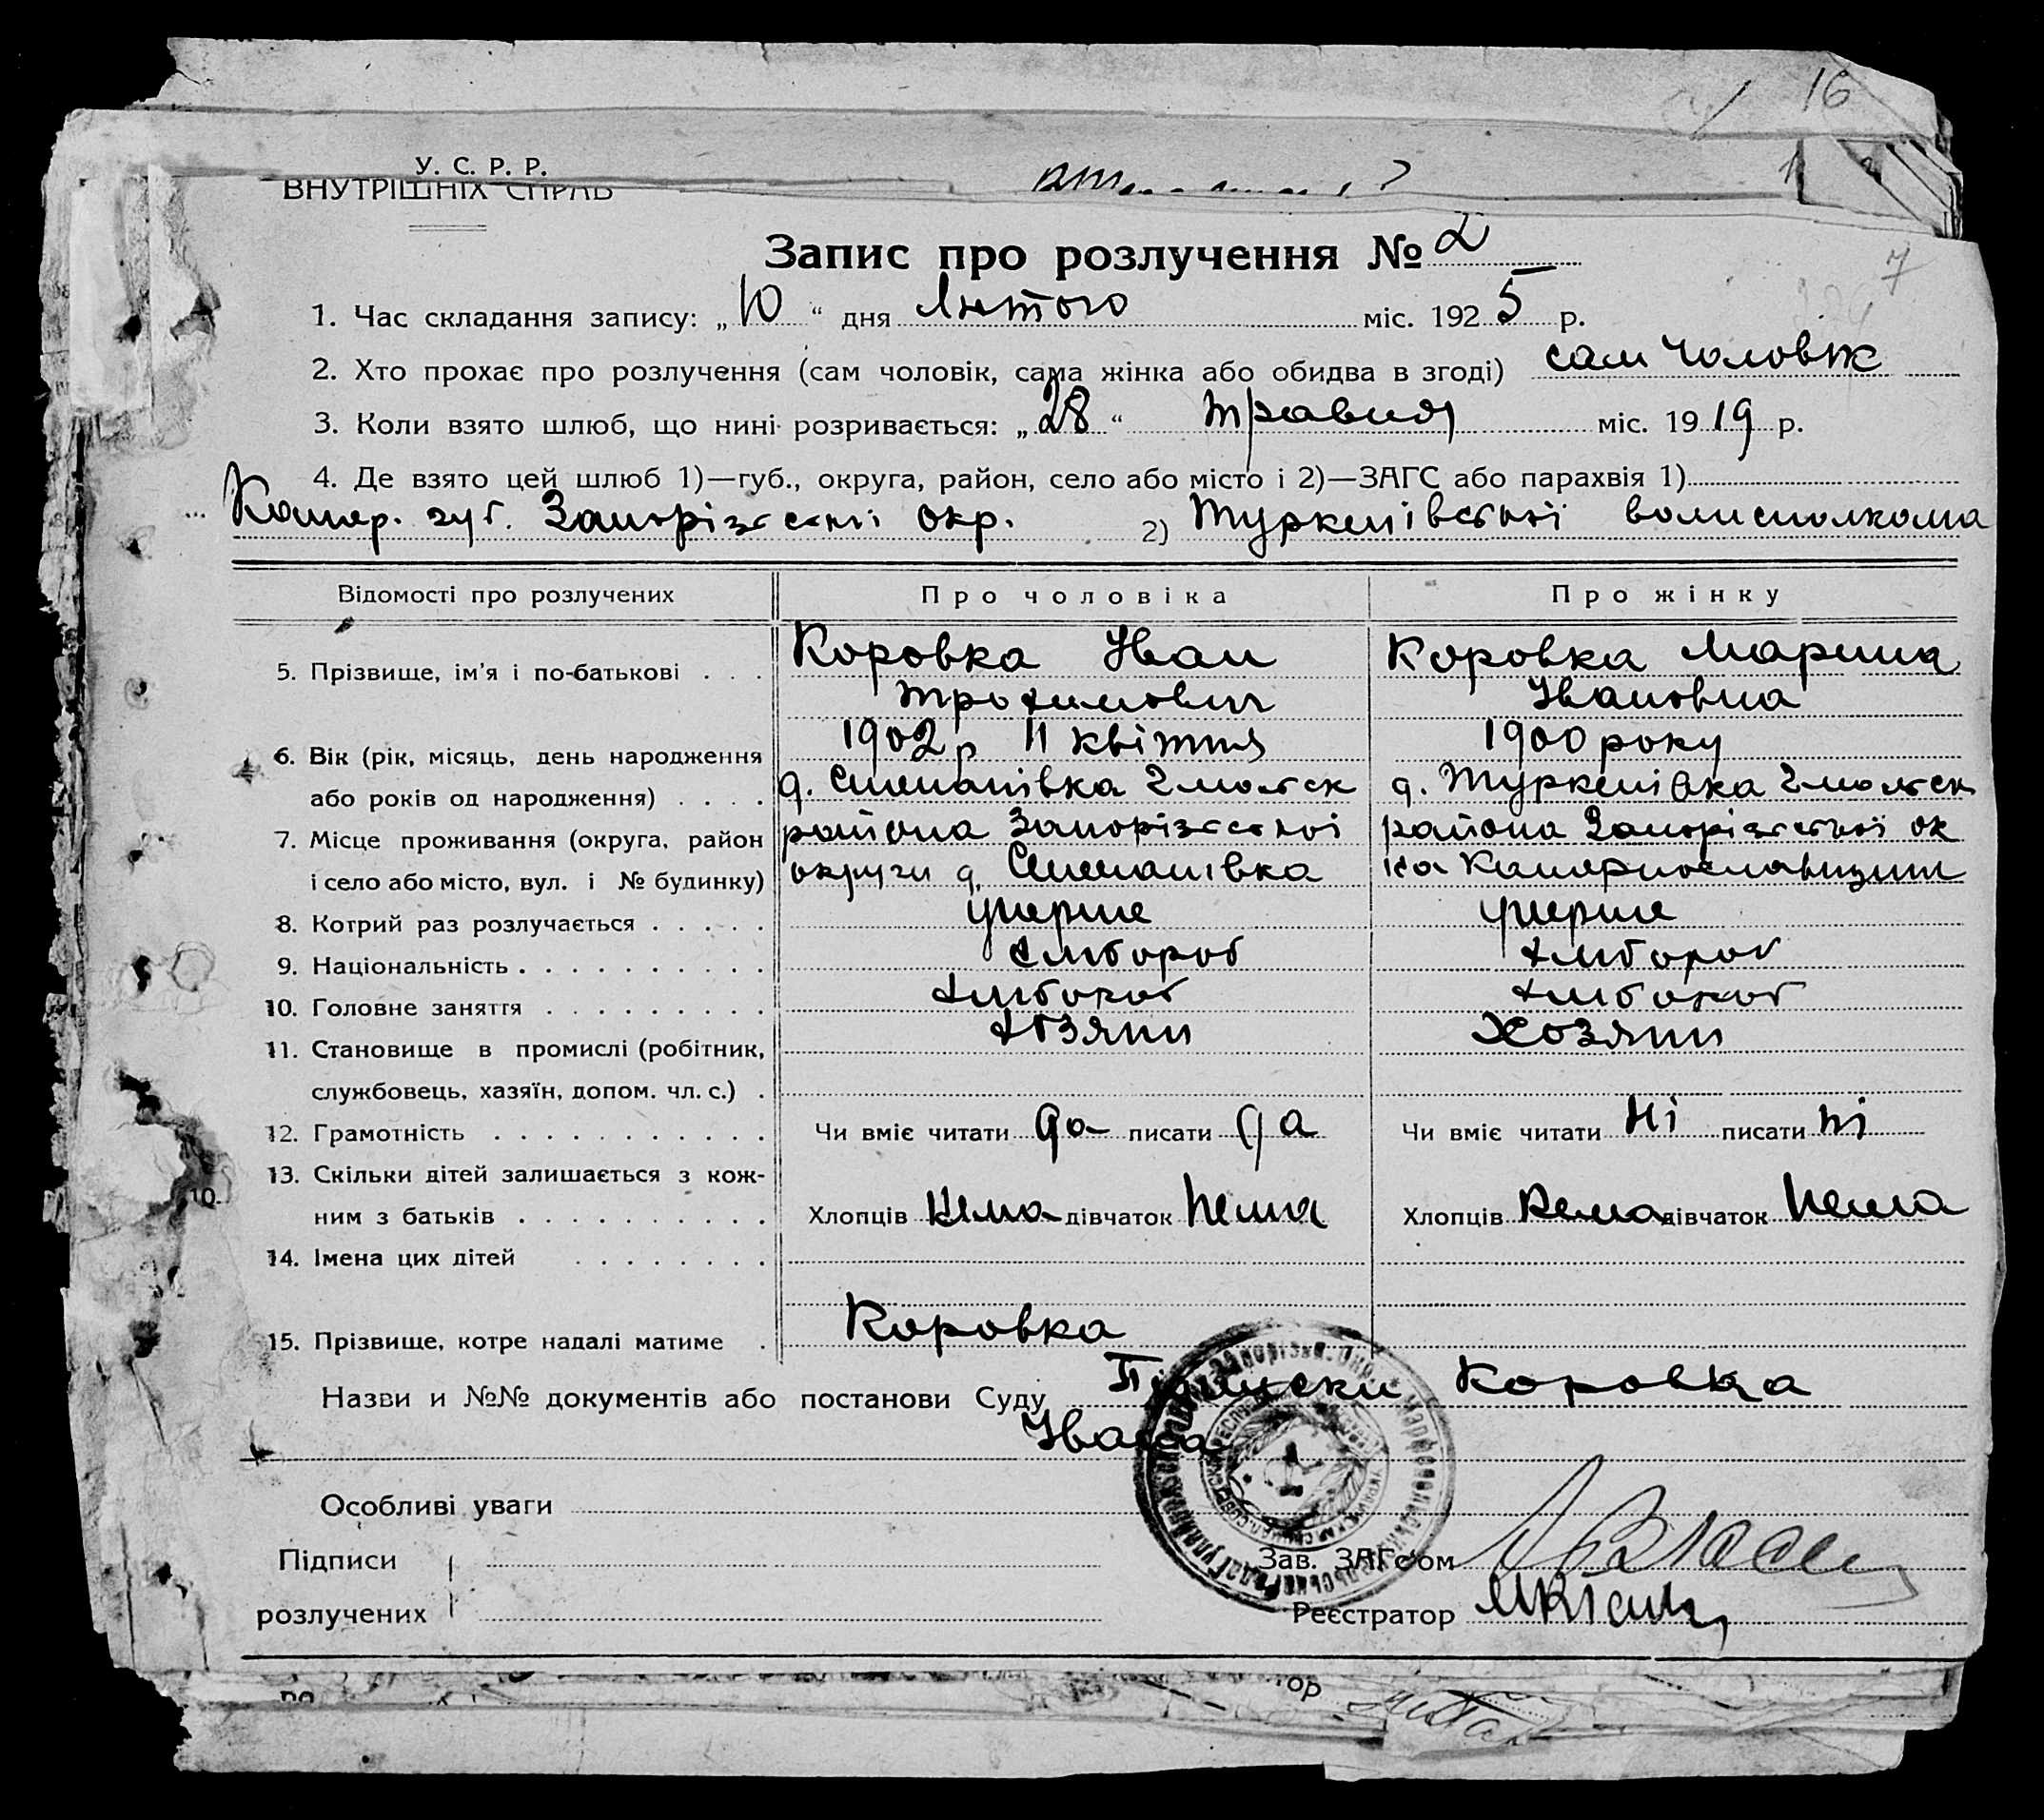 16
У. С. Р. Р.
ВНУТРІШНІХ СПРАВ
Запис про розлучення № 2
7
1. Час складання запису: „10“ дня Лютого міс. 1925 р.
2. Хто прохає про розлучення (сам чоловік, сама жінка або обидва в згоді) сам чоловік
3. Коли взято шлюб, що нині розривається: „28“ травня міс. 1919 р.
4. Де взято цей шлюб 1)—губ., округа, район, село або місто і 2)—ЗАГС або парахвія 1)
Катер. губ. Запорізської окр. 2) Туркенівської волисполкома
Відомості про розлучених Про чоловіка Про жінку
5. Прізвище, ім'я і по-батькові . . . Коровка Иван Коровка Марина
Трохимович Ивановна
6. Вік (рік, місяць, день народження 1902 р 11 квітня 1900 року
або років од народження) . . . . д. Степанівка д. Туркенівка
7. Місце проживання (округа, район района Запорізської района Запорізської ок
і село або місто, вул. і № будинку) округи д. Степанівка
8. Котрий раз розлучається . . . . . уперше уперше
9. Національність . . . . . . . . . . хлібороб хлібороб
10. Головне заняття . . . . . . . . . хлібороб хлібороб
11. Становище в промислі (робітник, хозяин хозяин
службовець, хазяїн, допом. чл. с.) .
12. Грамотність . . . . . . . . . . . Чи вміє читати да писати да Чи вміє читати ні писати ні
13. Скільки дітей залишається з кож-
10.
ним з батьків . . . . . . . . . . Хлопців нема дівчаток нема Хлопців нема дівчаток нема
14. Імена цих дітей . . . . . . . .
15. Прізвище, котре надалі матиме . Коровка
Назви и №№ документів або постанови Суду Підписки Коровка
Ивана
Особливі уваги
Підписи Зав. ЗАГс'ом
розлучених Реєстратор
ор